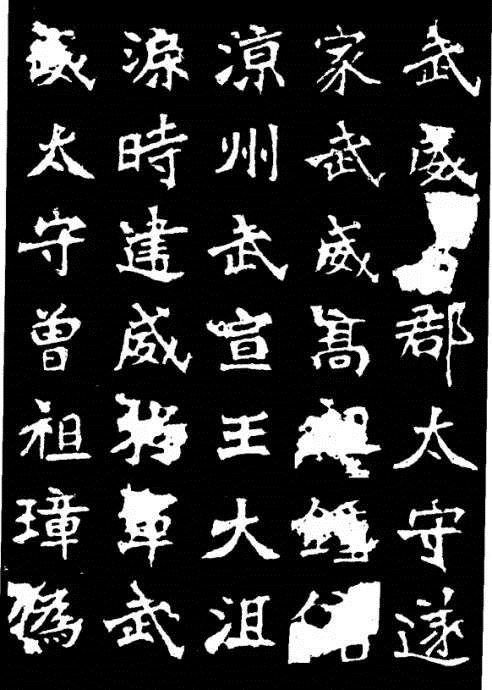 武威郡太守遂
家武威高祖鍾
涼州武宣王大沮
渠時建威將軍武
威太守曾祖璋偽